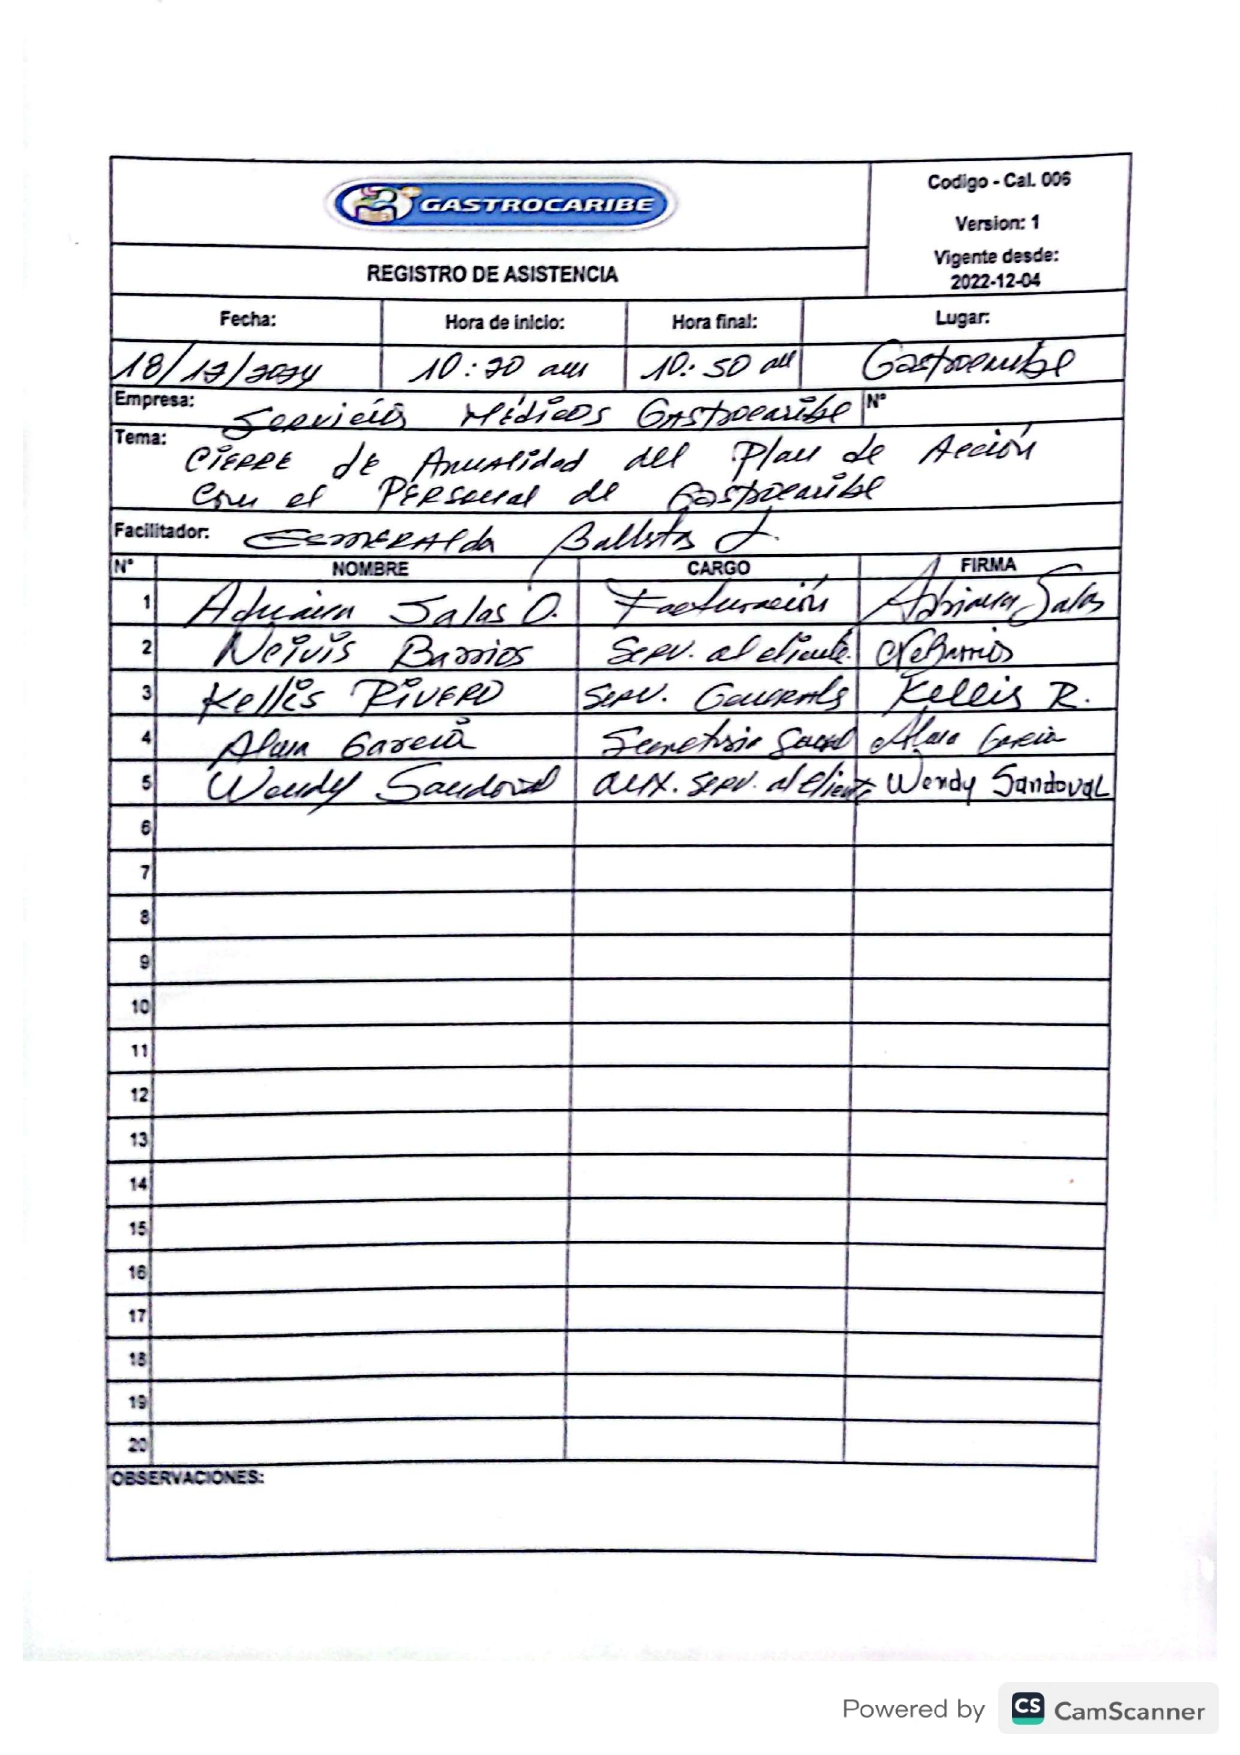 GASTROCARIBE
Codigo - Cal. 006
Version: 1
Vigente desde:
2022-12-04
REGISTRO DE ASISTENCIA
Fecha: Hora de inicio: Hora final: Lugar:
18/12/2024 10:20 am 10:50 am Gastrocaribe
Empresa: Servicios Médicos Gastrocaribe N°
Tema: CIERRE de Anualidad del Plan de Acción
con el PERSonal de Gastrocaribe
Facilitador: EsmERAlda Ballestas L.
N° NOMBRE CARGO FIRMA
1 Adriana Salas O. Facturación Adriana Salas
2 Neivis Barrios Serv. al cliente. NeBarrios
3 Kellis RIVERO Serv. Generals Kellis R.
4 Alma García Secretaria Alma Garcia
5 Wendy Sandoval aux. serv. al cliente Wendy Sandoval
6
7
8
9
10
11
12
13
14
15
16
17
18
19
20
OBSERVACIONES:
Powered by CS CamScanner